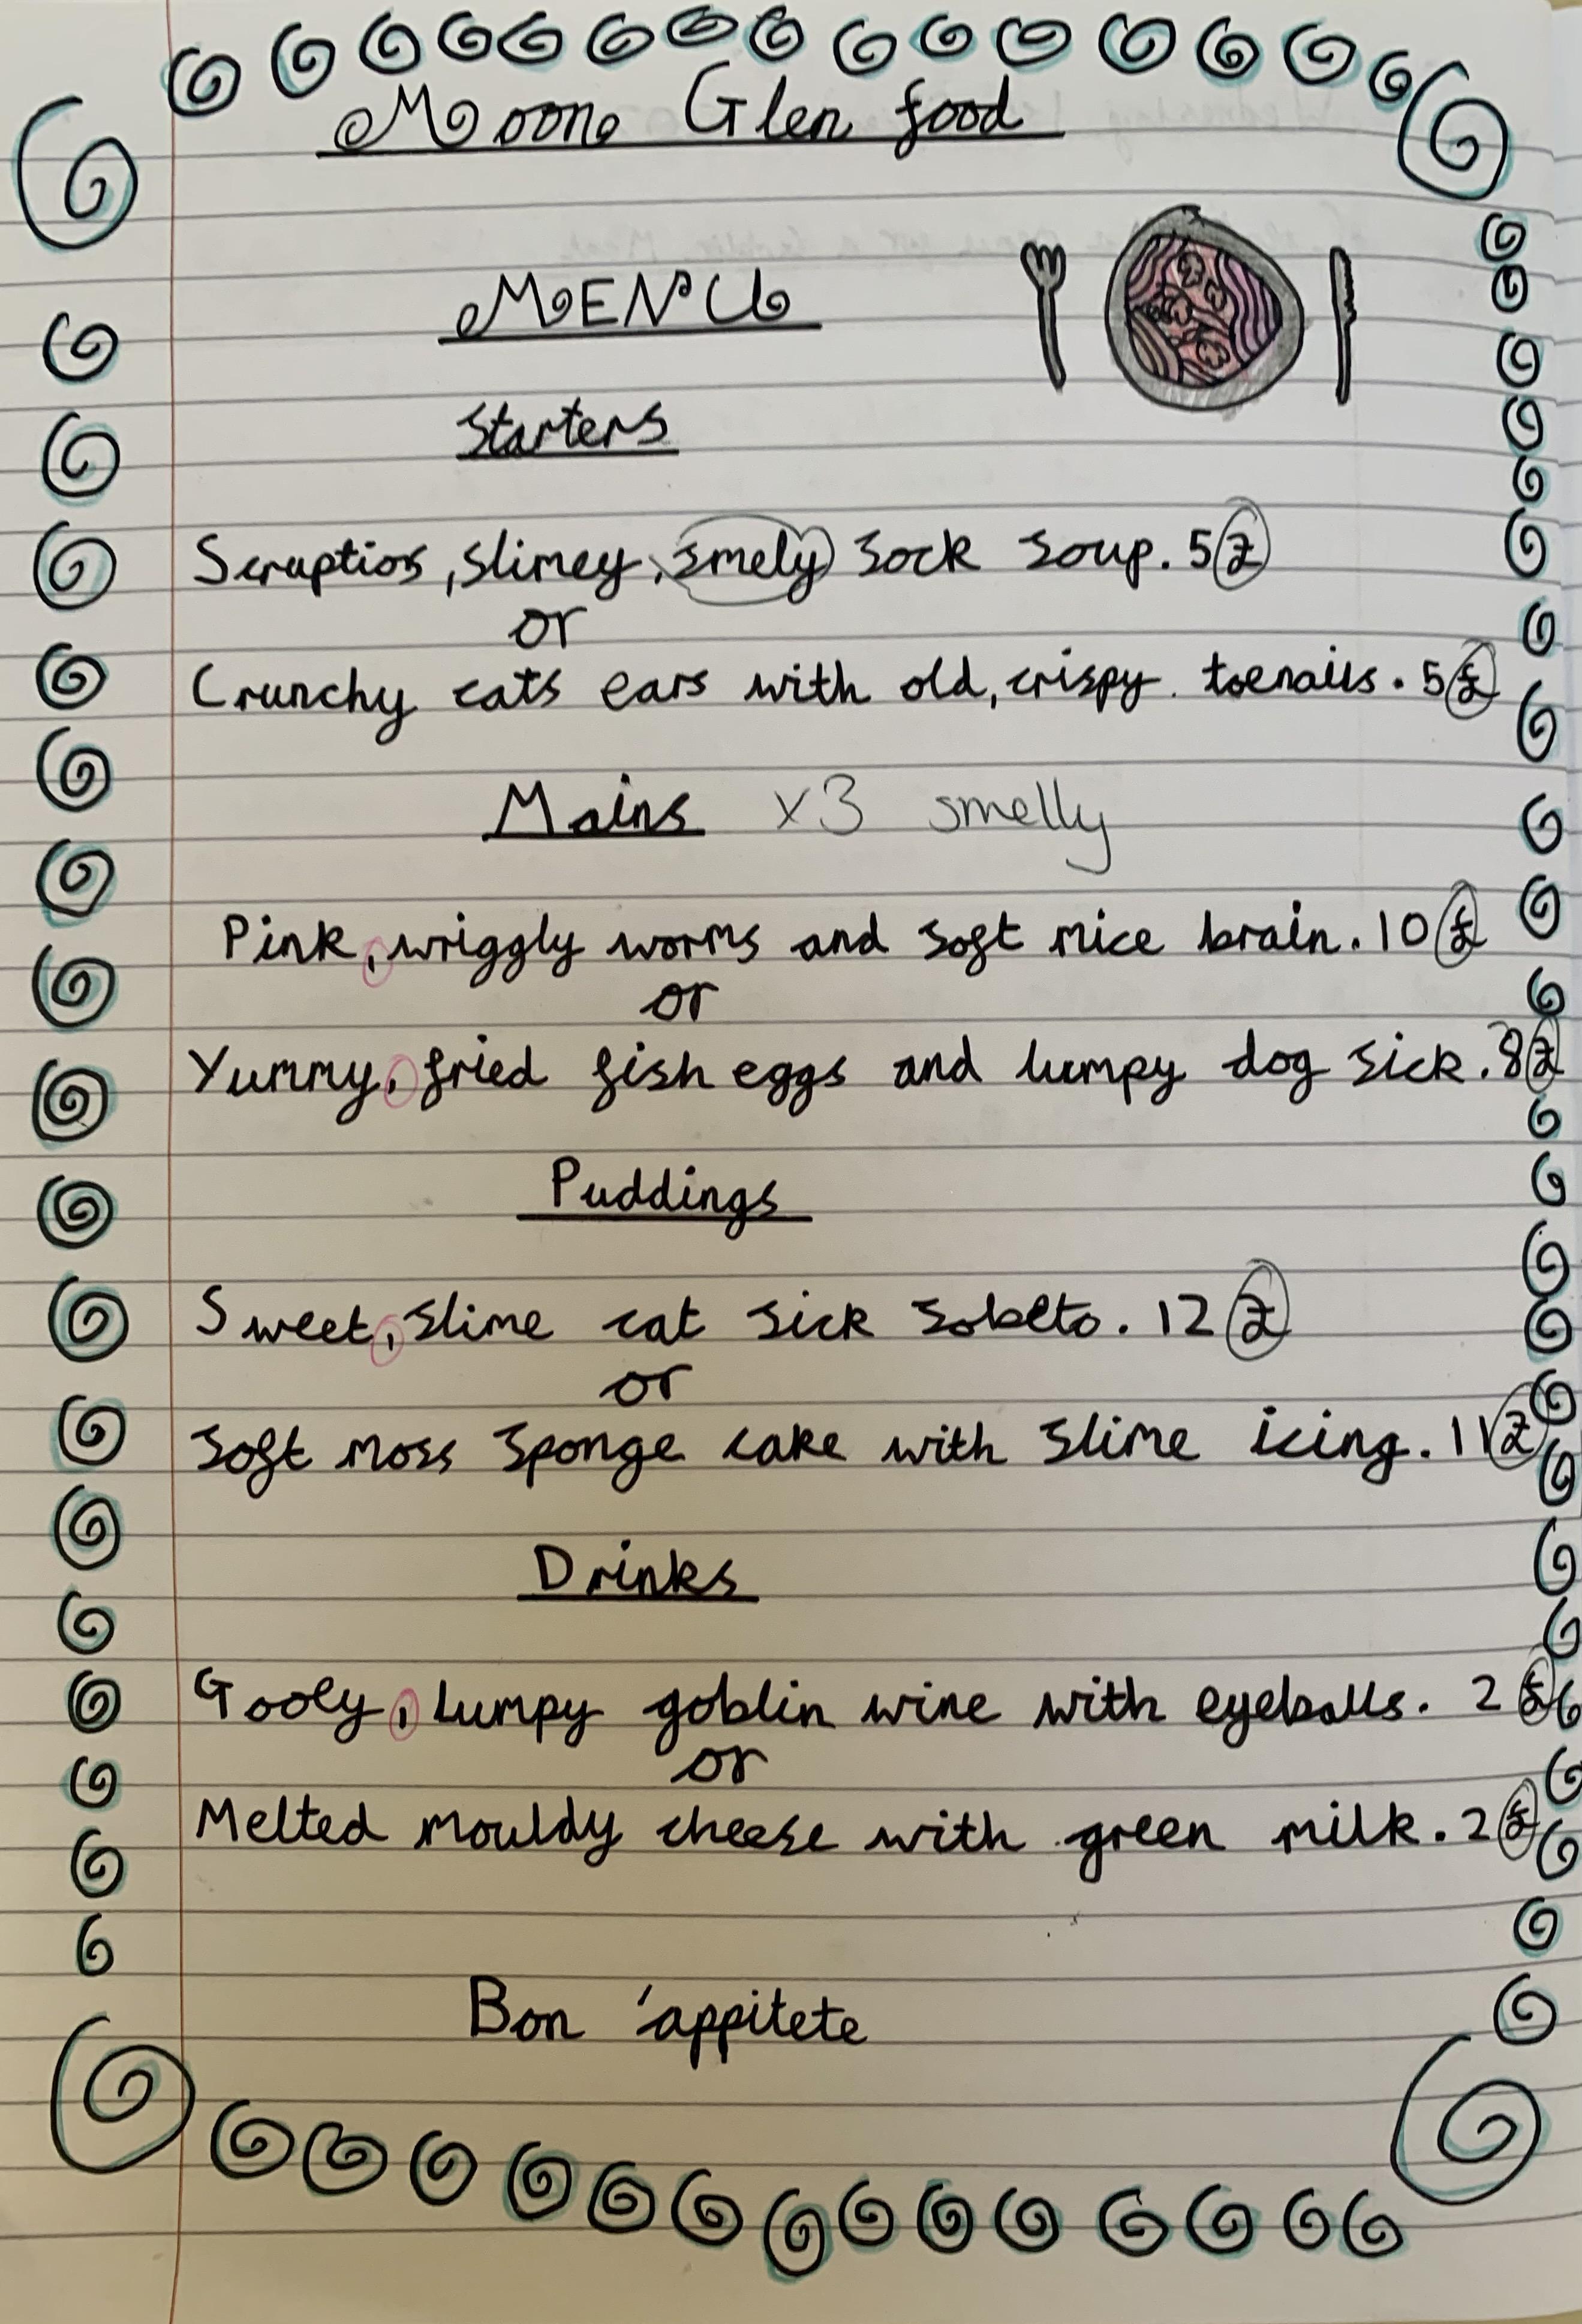 Moon Glen food
MENU
Starters
Scruptios, slimey, smely sock soup. 5£
or
Crunchy cats ears with old, crispy toenails. 5£
Mains x3 smelly
Pink, wriggly worms and soft mice brain. 10£
or
Yummy, fried fish eggs and lumpy dog sick. 8£
Puddings
Sweet, slime cat sick sobeto. 12£
or
Soft moss sponge cake with slime icing. 11£
Drinks
Gooey, lumpy goblin wine with eyeballs. 2£
or
Melted mouldy cheese with green milk. 2£
Bon 'appitete